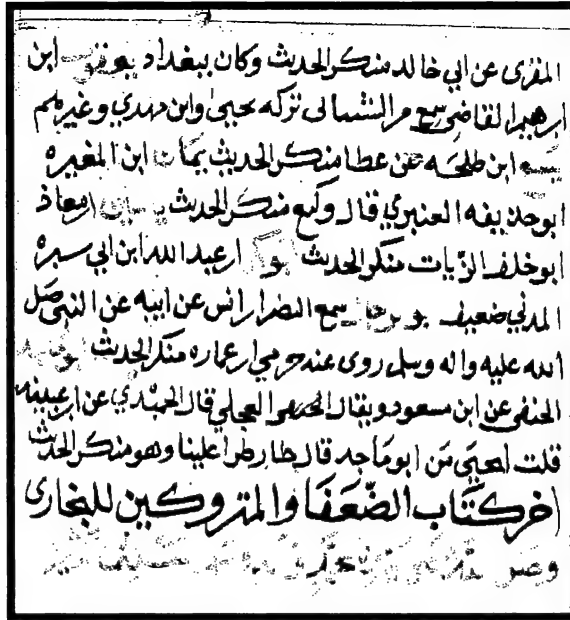 المقرى عن ابي خالد منكر الحديث وكان ببغداد يعقوب ابن
ابرهيم القاضي سمع من الشيباني تركه يحيى وابن مهدي وغيرهم
ابن طلحه عن عطا منكر الحديث يمان ابن المغيره
ابو حذيفه العنبري قال وكيع منكر الحديث ابن معاذ
ابو خلف الزيات منكر الحديث ابن عبد الله ابن ابي سبره
المدني ضعيف سمع النضر ابن انس عن ابيه عن النبي صلى
الله عليه واله وسلم روى عنه حرمي ابن عماره منكر الحديث
الحنفي عن ابن مسعود ويقال العجلي قال الحميدي عن ابن عيينه
قلت ليحيى من ابو ماجد قال طار طرا علينا وهو منكر الحديث
اخر كتاب الضعفا والمتروكين للبخارى